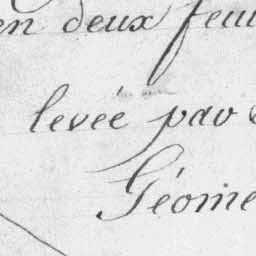 en deux feu
levée par
Géome